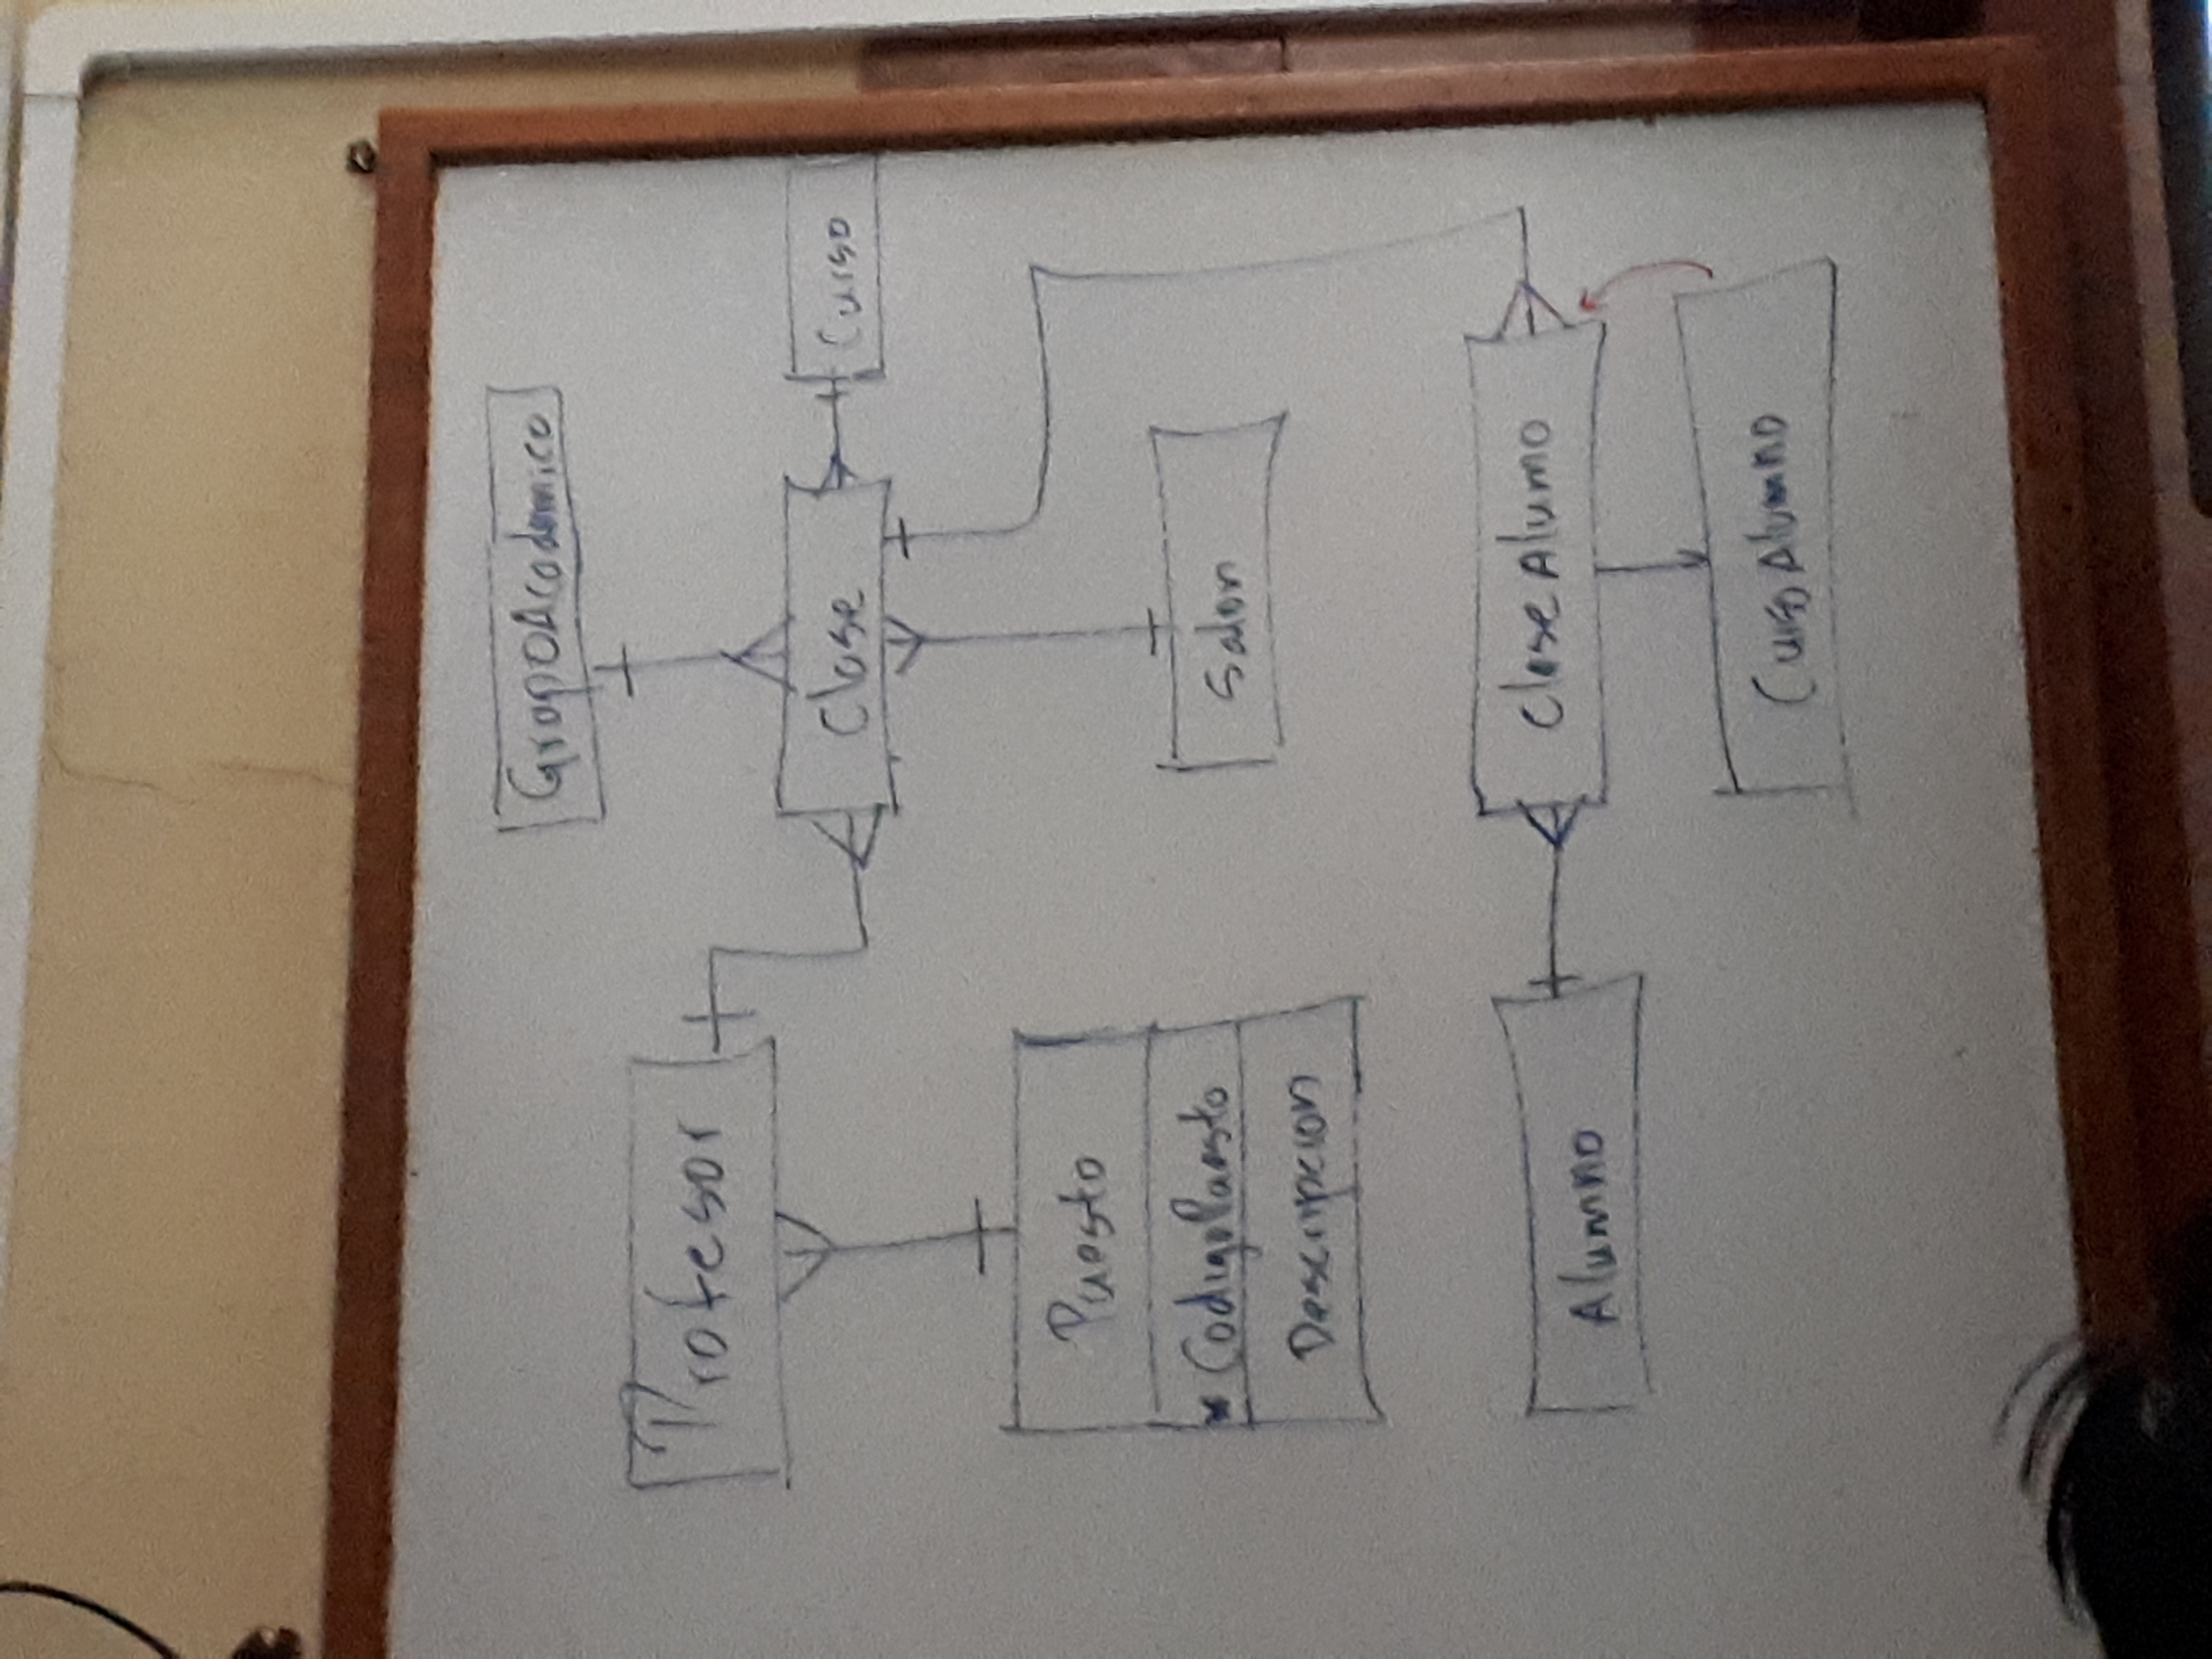 GrupoAcademico
Profesor
Clase
Curso
Puesto
* CodigoPuesto
Descripcion
Salon
Alumno
Clase Alumo
Curso Alumno